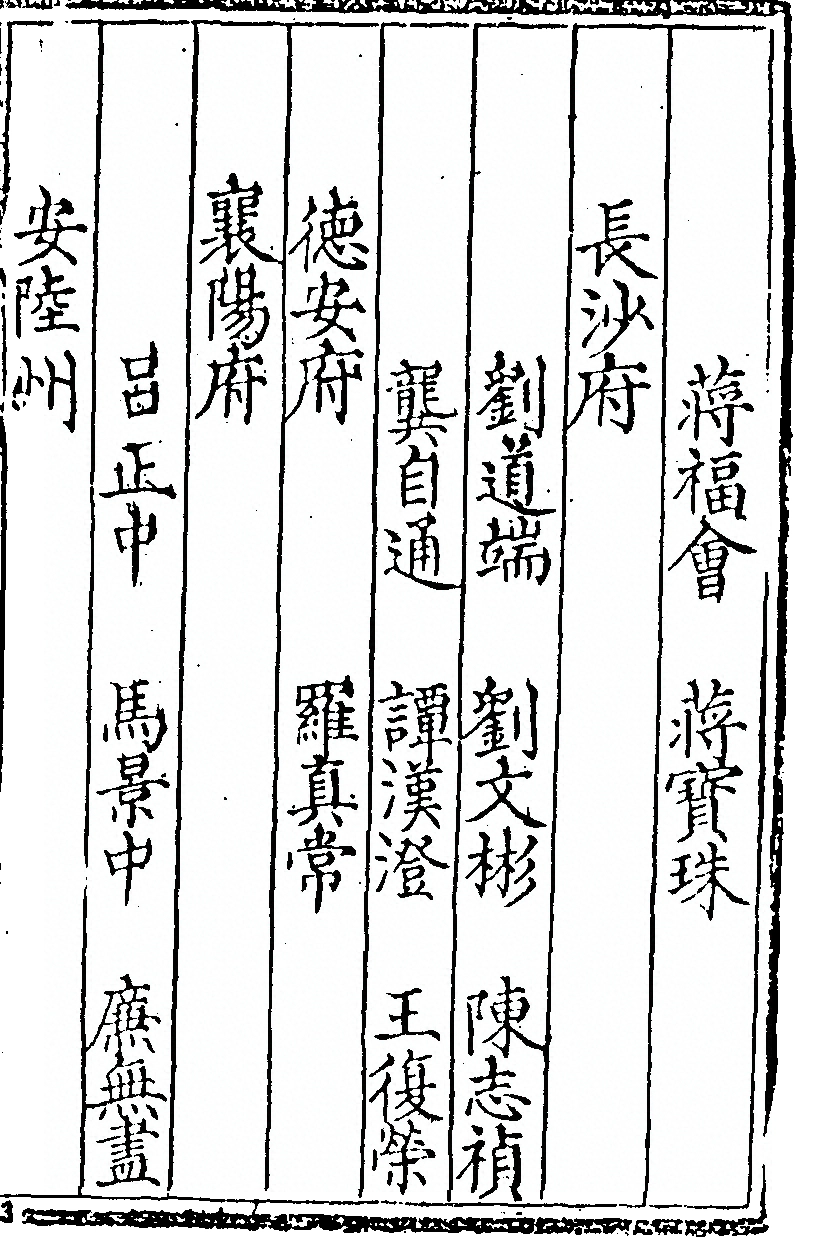 蔣福會 蔣寶珠
長沙府
劉道端 劉文彬 陳志禎
龔自通 譚漢澄 王復榮
德安府 羅真常
襄陽府
呂正中 馬景中 廉無盡
安陸州
3